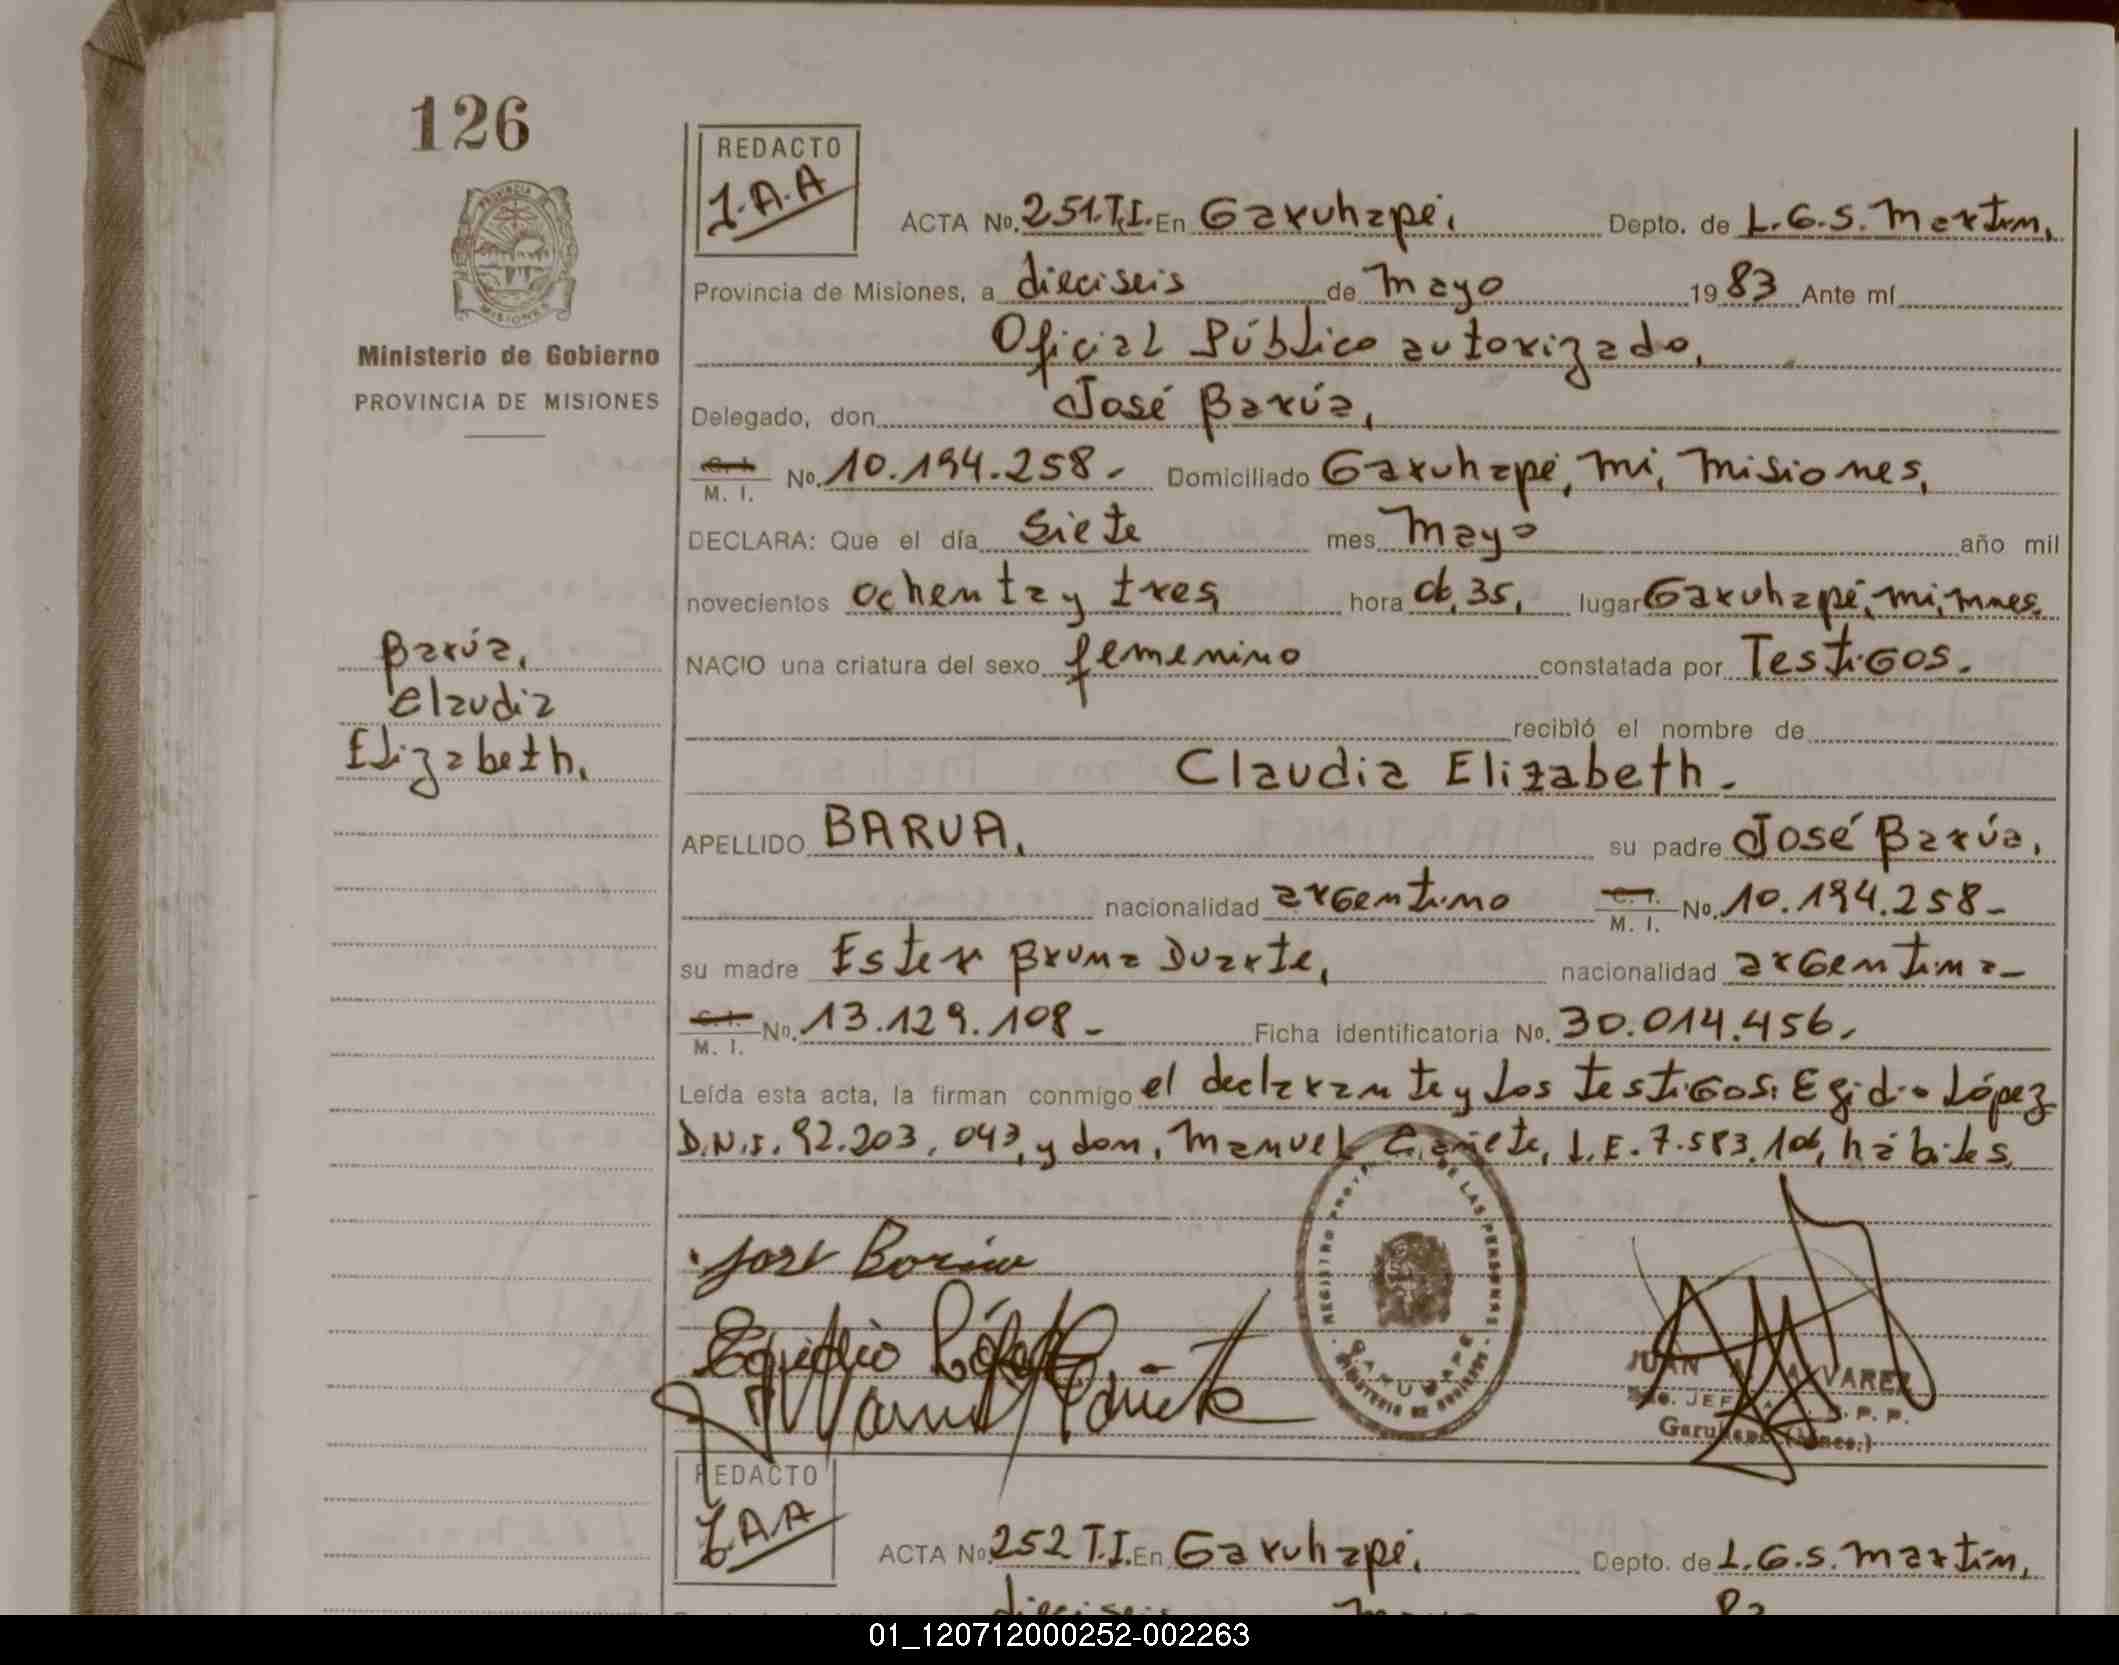 126
REDACTO
J.A.A
ACTA No. 251.T.I. En Garuhapé, Depto. de L.G.S. Martín,
Provincia de Misiones, a dieciseis de Mayo 1983 Ante mí
Oficial Público autorizado,
Ministerio de Gobierno
PROVINCIA DE MISIONES
Delegado, don José Barúa,
C. I. M. I. No. 10.194.258- Domiciliado Garuhapé, Mi, Misiones,
DECLARA: Que el día Siete mes Mayo año mil
novecientos ochenta y tres, hora 06,35, lugar Garuhapé, Mi, Mnes,
NACIO una criatura del sexo femenino constatada por Testigos.
Barúa,
Claudia
Elizabeth,
recibió el nombre de
Claudia Elizabeth.
APELLIDO BARUA, su padre José Barúa,
nacionalidad argentino C. I. M. I. No. 10.194.258-
su madre Ester Bruna Duarte, nacionalidad argentina-
C. I. M. I. No. 13.129.108- Ficha identificatoria No. 30.014.456,
Leída esta acta, la firman conmigo el declarante y los testigos: Egidio López
D.N.I. 92.203.043, y don, Manuel Cañete, L.E. 7.583.106, hábiles.
José Barúa
Egidio López
Manuel Cañete
REGISTRO PROV. DE LAS PERSONAS
GARUHAPE
MINISTERIO DE GOBIERNO
JUAN A. ALVAREZ
JEF P. P.
Garuhapé (Mnes.)
REDACTO
J.A.A
ACTA No. 252 T.I. En Garuhapé, Depto. de L.G.S. Martín,
dieciseis Mayo 83
01_120712000252-002263